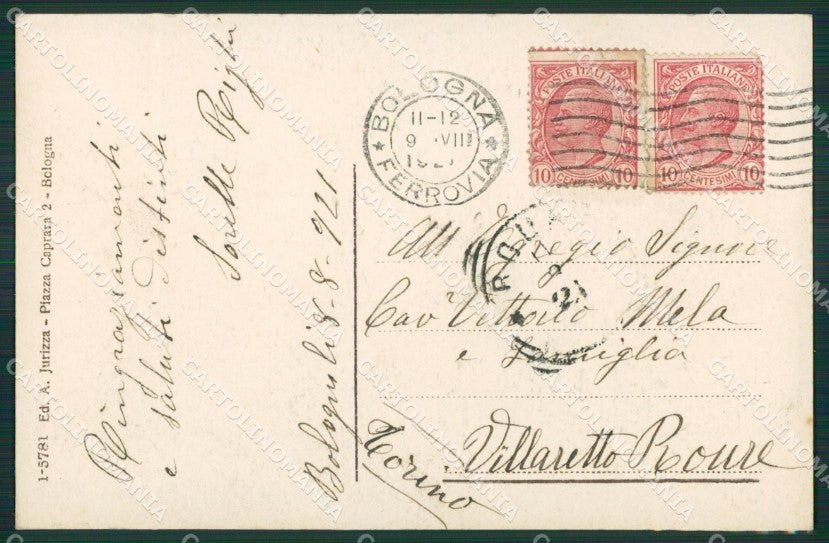 Ringraziamenti
e saluti distinti
Sorelle Righi
Bologna li 8-8-921
1-5781 Ed. A. Jurizza - Piazza Caprara 2 - Bologna
BOLOGNA
11-12
9 VIII
FERROVIA
POSTE ITALIANE
10 CENTESIMI 10
POSTE ITALIANE
10 CENTESIMI 10
All' Egregio Signor
Cavr Vittorio Mela
e Famiglia
Villaretto Roure
Torino
CARTOLINOMANIA